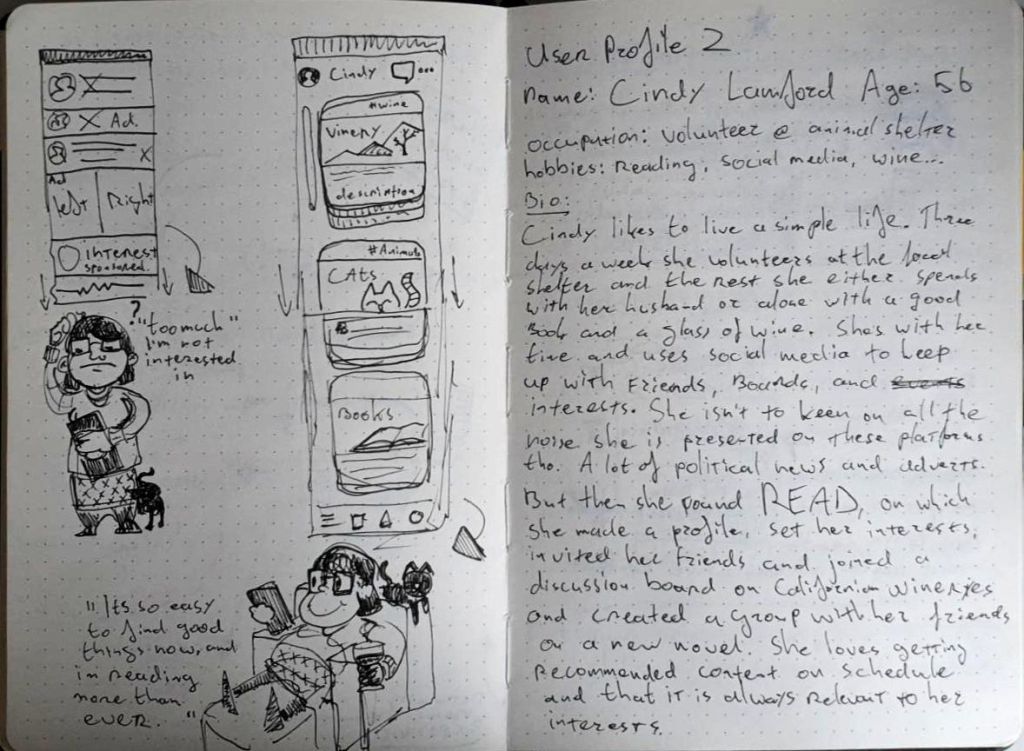 Ad.
Ad
left
Right
interest
sponsored.
?
"too much"
I'm not
interested
in
Cindy
#wine
Vinery
description
#Animals
CAts
Books
"Its so easy
to find good
things now, and
im reading
more than
ever."
User Profile 2
name: Cindy Lamford Age: 56
occupation: volunteer @ animal shelter
hobbies: Reading, social media, wine...
Bio:
Cindy likes to live a simple life. Three
days a week she volunteers at the local
shelter and the rest she either spends
with her husband or alone with a good
Book and a glass of wine. Shes with her
time and uses social media to keep
up with Friends, Boards, and events
interests. She isn't to keen on all the
noise she is presented on these platforms
tho. A lot of political news and adverts.
But then she pound READ, on which
she made a profile, set her interests,
invited her friends and joined a
discussion board on Californian wineryes
and created a group with her friends
on a new novel. She loves getting
Recommended content on schedule
and that it is always Relevant to her
interests.